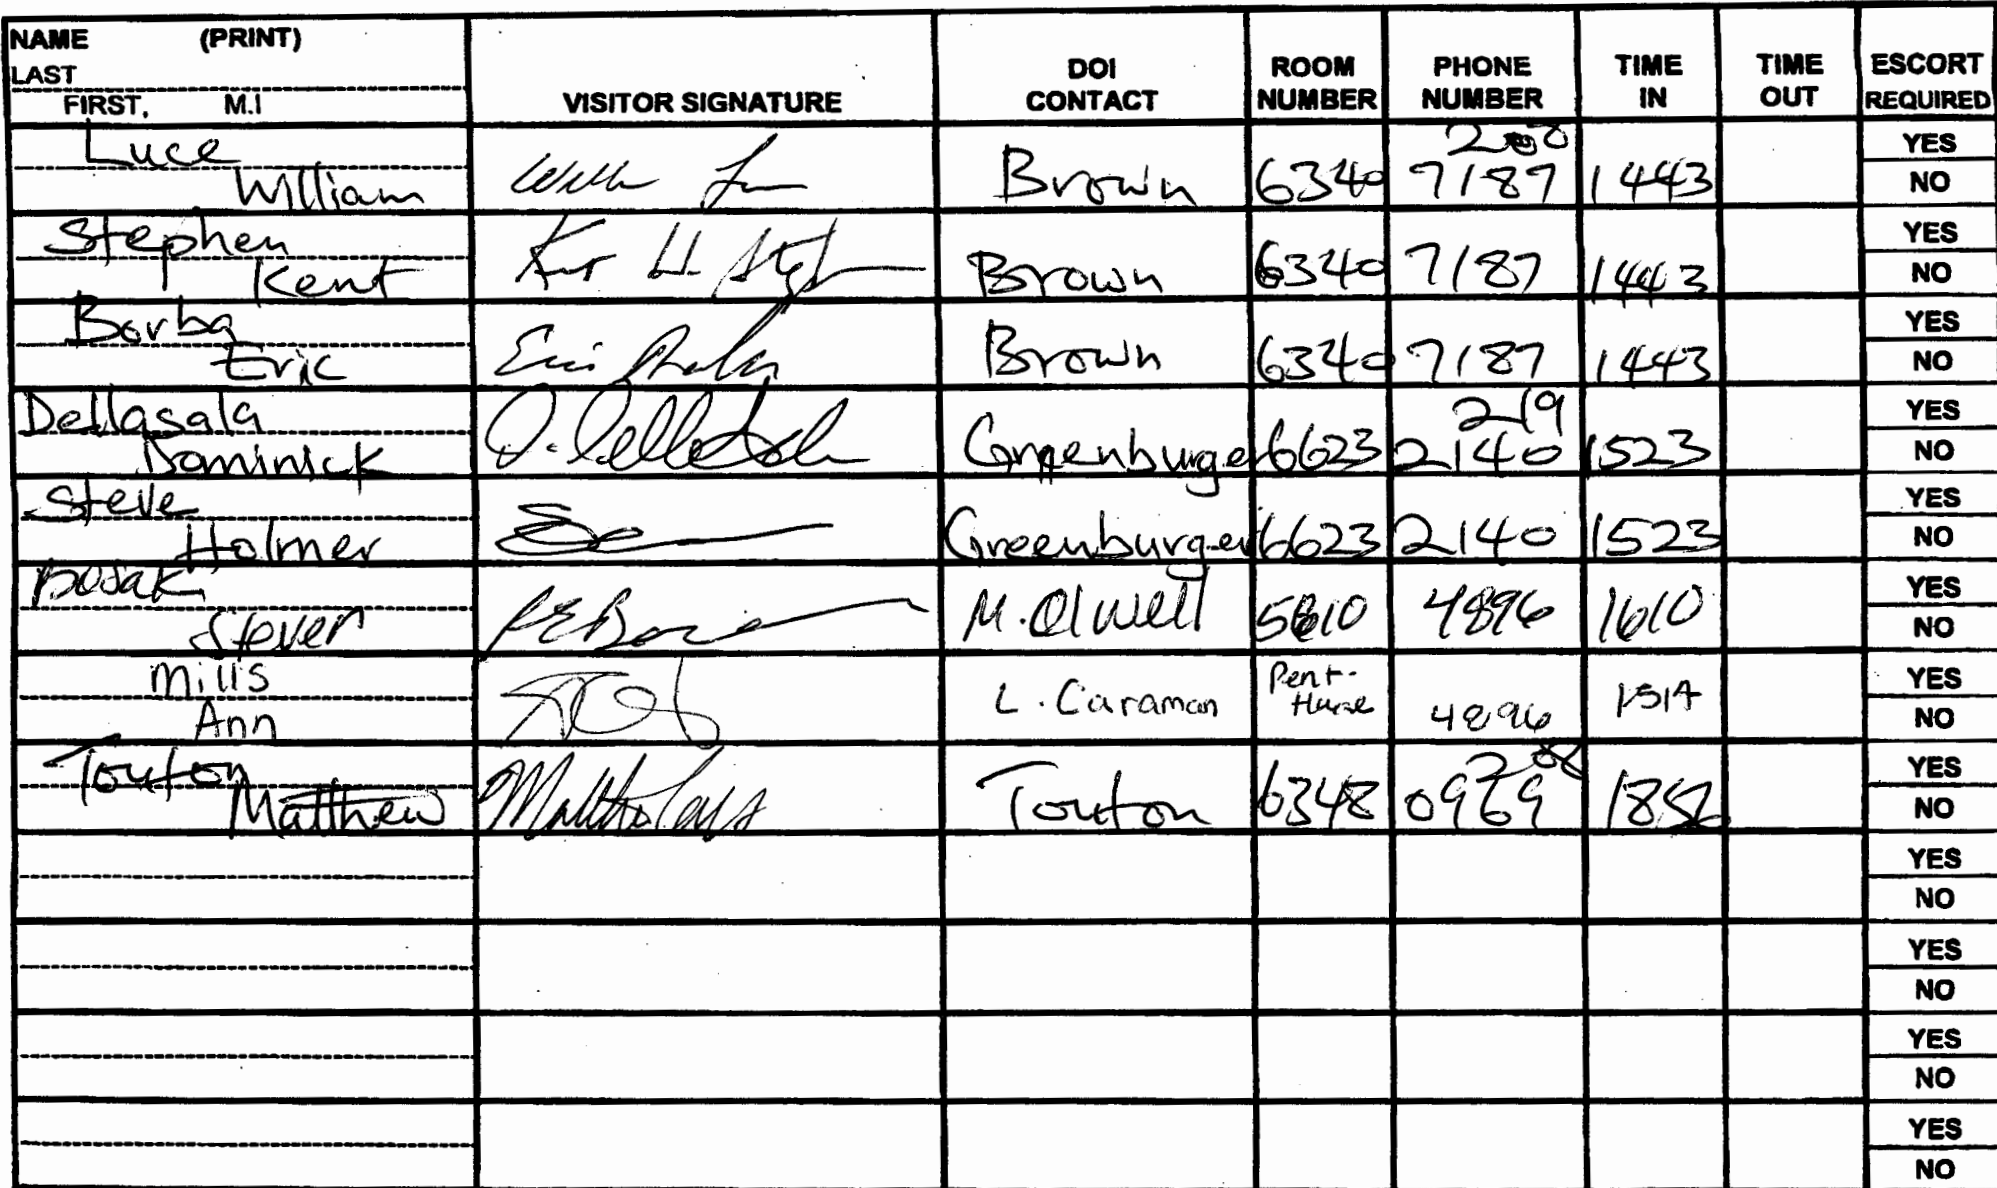 NAME (PRINT)
LAST
FIRST, M.I
VISITOR SIGNATURE
DOI CONTACT
ROOM NUMBER
PHONE NUMBER
TIME IN
TIME OUT
ESCORT REQUIRED
Luce
William
Brown 6340 208 7187 1443
YES
NO
Stephen
Kent
Kent H. Steph
Brown 6340 7187 1443
YES
NO
Borba
Eric
Eric
Brown 6340 7187 1443
YES
NO
Dellasala
Dominick
Greenburger 6623 219 2140 1523
YES
NO
Steve
Holmer
Greenburger 6623 2140 1523
YES
NO
Bosak
Steven
M. Olwell 5610 4896 1610
YES
NO
Mills
Ann
L. Caraman Pent-House 4896
YES
NO
Touton
Matthew
Touton 6348 208 0969
YES
NO
YES
NO
YES
NO
YES
NO
YES
NO